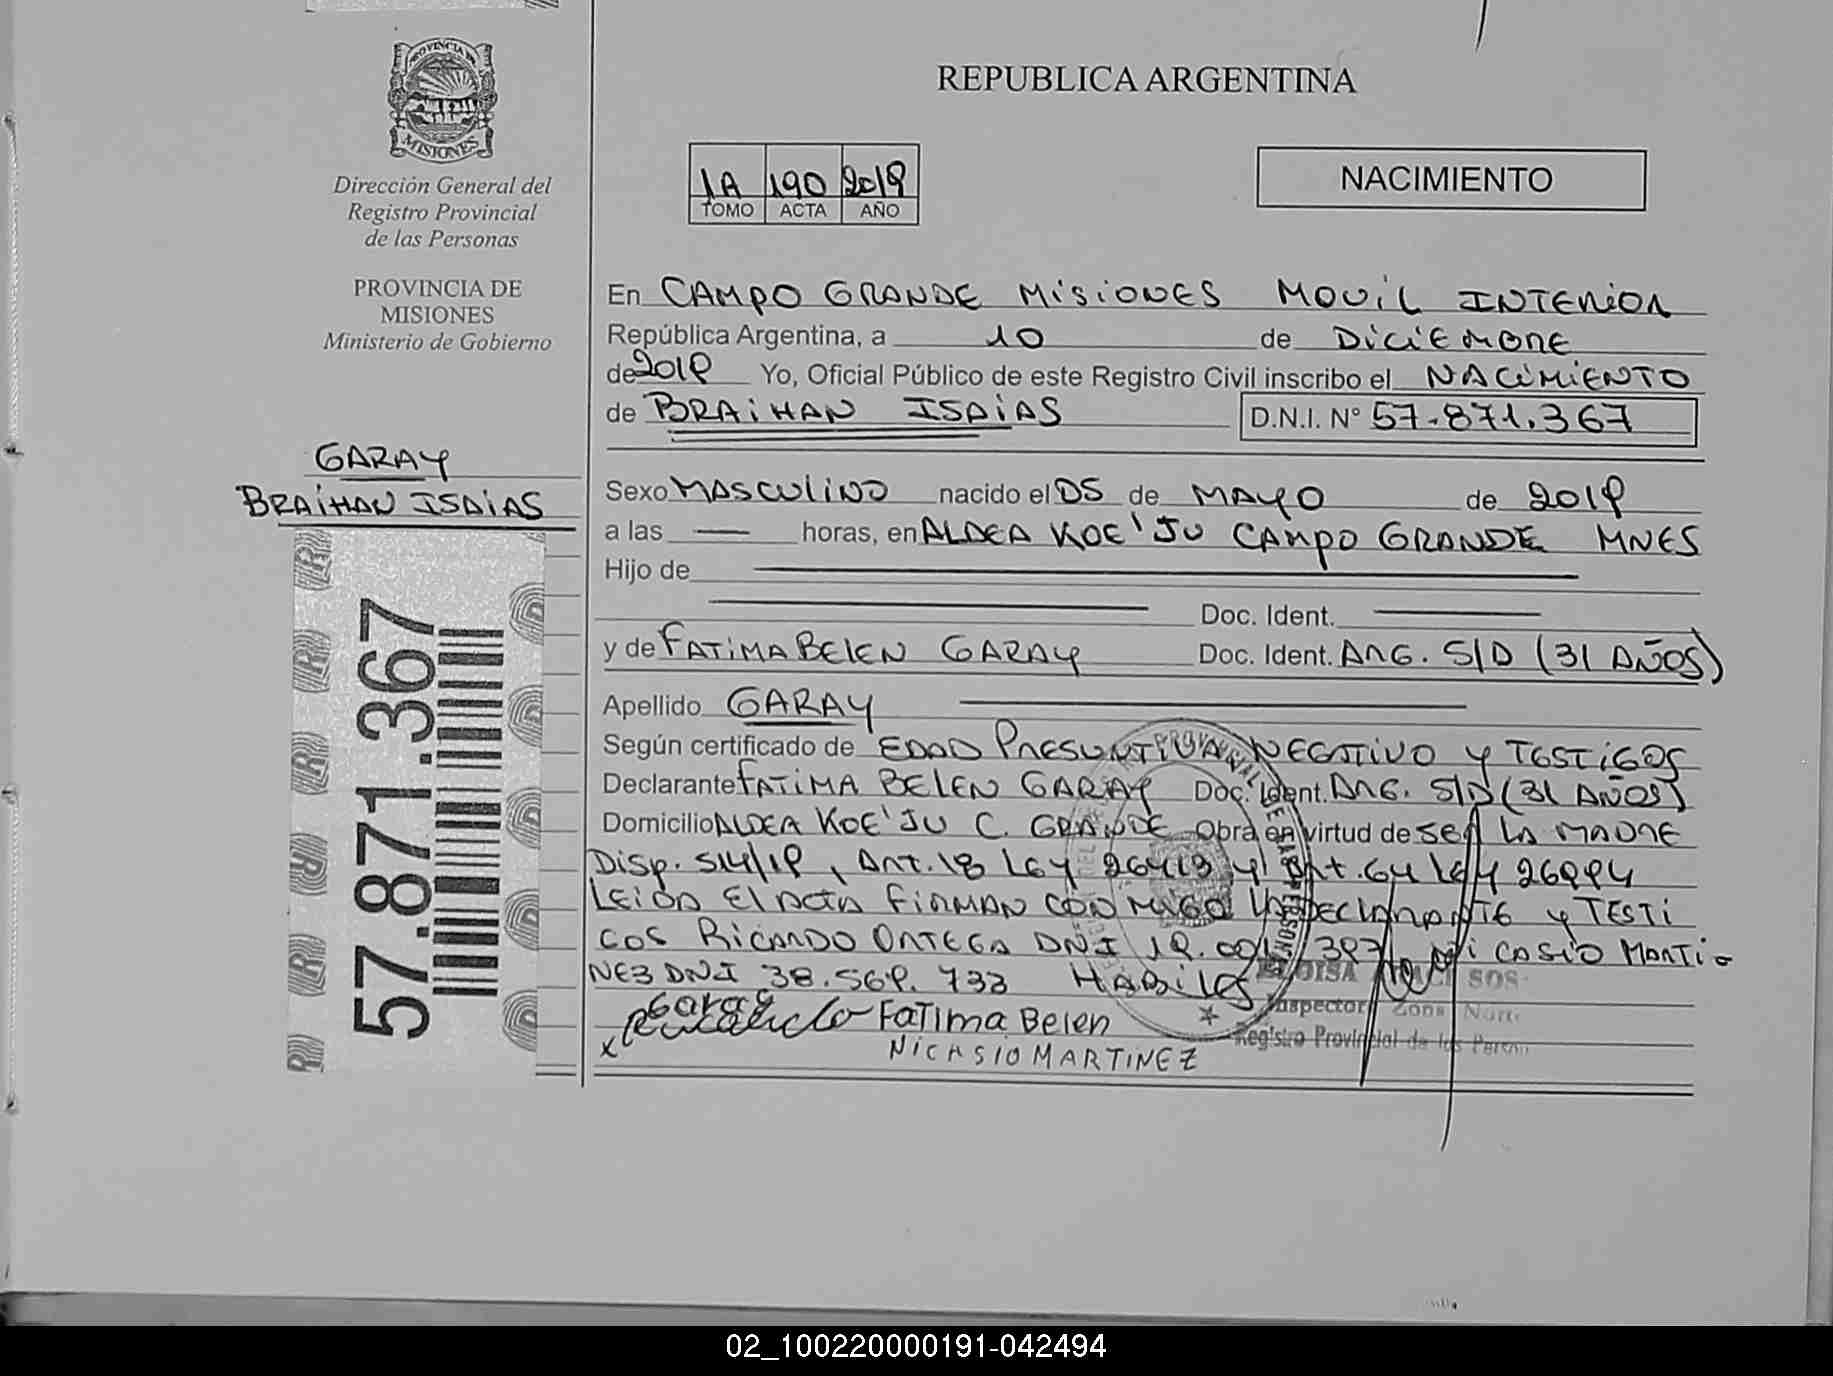 PROVINCIA DE
MISIONES
Dirección General del
Registro Provincial
de las Personas
PROVINCIA DE
MISIONES
Ministerio de Gobierno
GARAY
BRAIHAN ISAIAS
57.871.367
REPUBLICA ARGENTINA
1A 190 2019
TOMO ACTA AÑO
NACIMIENTO
En CAMPO GRANDE MISIONES MOVIL INTERIOR
República Argentina, a 10 de DICIEMBRE
de 2019 Yo, Oficial Público de este Registro Civil inscribo el NACIMIENTO
de BRAIHAN ISAIAS D.N.I. N° 57.871.367
Sexo MASCULINO nacido el 05 de MAYO de 2019
a las — horas, en ALDEA KOE'JU CAMPO GRANDE MNES
Hijo de
Doc. Ident.
y de FATIMA BELEN GARAY Doc. Ident. ARG. S/D (31 AÑOS)
Apellido GARAY
Según certificado de EDAD PRESUNTIVA NEGATIVO Y TESTIGOS
Declarante FATIMA BELEN GARAY Doc. Ident. ARG. S/D (31 AÑOS)
Domicilio ALDEA KOE'JU C. GRANDE Obra en virtud de SER LA MADRE
Disp. 514/19, ART. 18 LEY 26413 y Art. 64 ley 26994
LEIDA EL ACTA FIRMAN CONMIGO LA DECLARANTE y TESTI
GOS RICARDO ORTEGA DNI 397 NICASIO MARTI-
NEZ DNI 38.569.733 HABILES
Garay
Ricardo FaTima Belen
x NICASIO MARTINEZ
Inspector Zona Norte
Registro Provincial de las Person
02_100220000191-042494